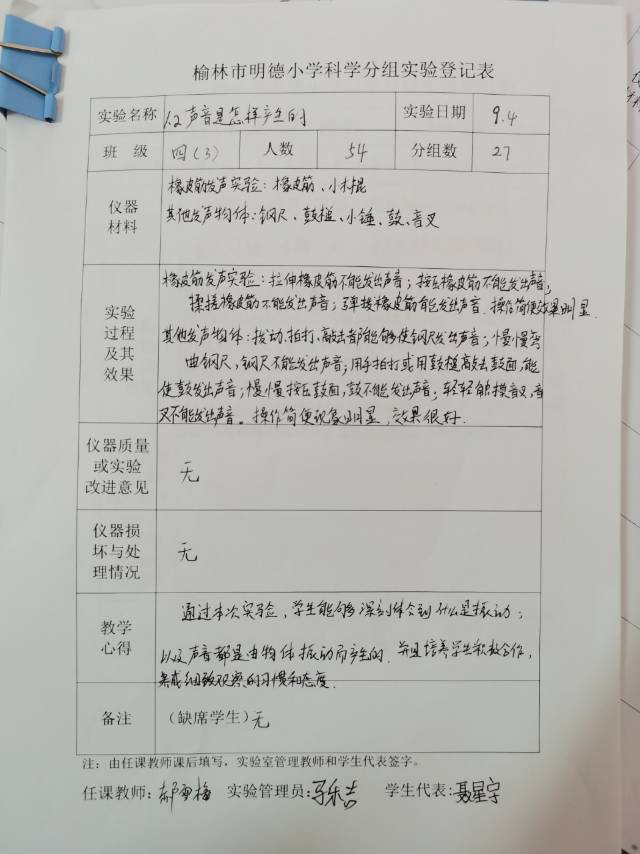 榆林市明德小学科学分组实验登记表
实验名称 1.2 声音是怎样产生的 实验日期 9.4
班 级 四(3) 人数 54 分组数 27
仪器材料 橡皮筋发声实验：橡皮筋、小木棍
其他发声物体：钢尺、鼓槌、小锤、鼓、音叉
实验过程及其效果 橡皮筋发声实验：拉伸橡皮筋不能发出声音；按压橡皮筋不能发出声音；
揉搓橡皮筋不能发出声音；弹拨橡皮筋能发出声音.操作简便效果明显.
其他发声物体：拨动、拍打、敲击都能够使钢尺发出声音；慢慢弯
曲钢尺，钢尺不能发出声音；用手拍打或用鼓槌敲击鼓面，能
使鼓发出声音；慢慢按压鼓面，鼓不能发出声音；轻轻触摸音叉，音
叉不能发出声音。操作简便现象明显，效果很好.
仪器质量或实验改进意见 无
仪器损坏与处理情况 无
教学心得 通过本次实验，学生能够深刻体会到什么是振动；
以及声音都是由物体振动而产生的.并且培养学生积极合作，
养成细致观察的习惯和态度.
备注 （缺席学生）无
注：由任课教师课后填写，实验室管理教师和学生代表签字。
任课教师：郝 梅 实验管理员：马乐吉 学生代表：聂星宇